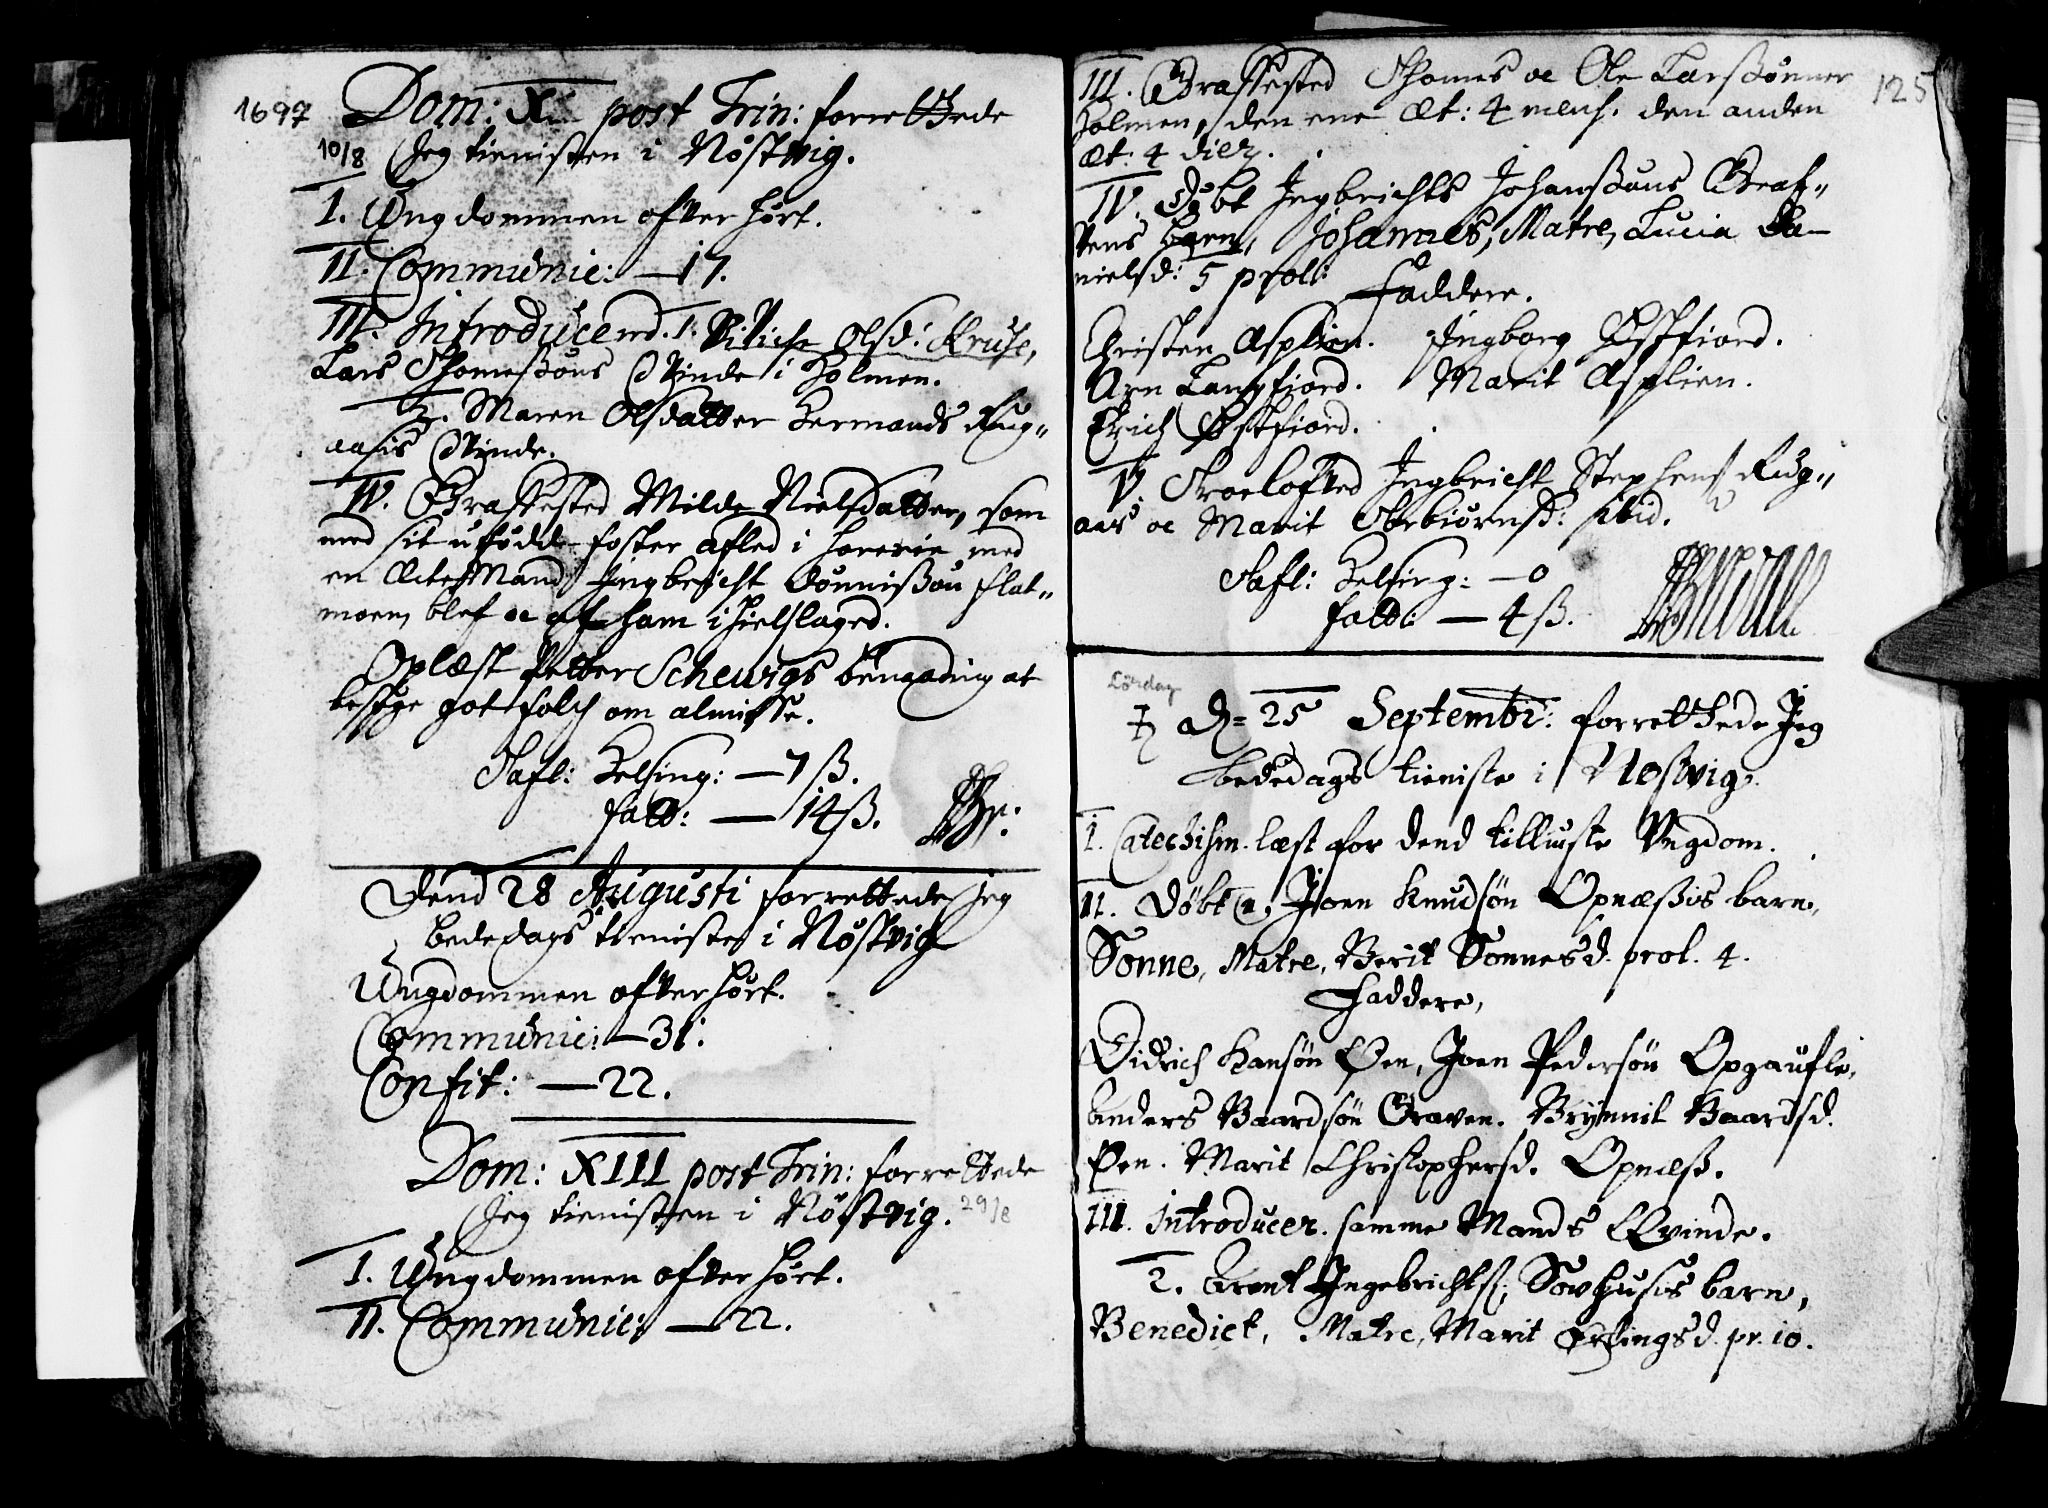 1697
Dom: X post Trin: forrettede
10/8 Jeg tienisten i Nøstvig.
I. Ungdommen ofverhørt.
II. Communic: — 17.
III. Introducend. 1. Olsd: Kruse,
Lars Thomesøns Qvinde i Holmen.
2. Maren Olsdatter Hermands Rug„
aasis Qvinde.
IV. Graffested Milde Nielsdatter, som
med sit ufødde foster afled i horerie med
en Ecte Mand Ingbricht Tønnisøn Flat„
moen, blef oc af ham ihielslaged.
Oplæst Petter Schewigs benaading at
besøge got folch om almisse.
Tafl: Helsing: — 7 ß.
fatt: — 14 ß.
Dend 28 Augusti forrettede jeg
bededags tieniste i Nøstvig
Ungdommen ofverhørt.
Communic: — 31:
Confit: — 22.
Dom: XIII post Trin: forrettede
Jeg tienisten i Nøstvig. 29/8
I. Ungdommen ofverhørt.
II. Communic: — 22.
125
III. Graffested Thomes oc Ole Larssønner
Holmen, den ene Æt: 4 mens. den anden
Æt: 4 dier.
IV. Døbt Ingbrichts Johanssøns Graf„
vens barn, Johannes, Matre, Lucia Da-
nielsd: 5 prol:
Faddere.
Christen Asplien. Ingborg Østfiord.
Arn Langfiord. Marit Asplien.
Erich Østfiord.
V. Troelofved Ingbricht Stephens Rug„
aas oc Marit Torbiørnsd: ibid.
Tafl: Helsing: — 0
fatt: — 4 ß.
Lørdag
d= 25 Septembr: forrettede Jeg
bededags tieniste i Nøstvig.
I. Catechism. læst for dend tilliuste Ungdom.
II. Døbt Joen Knudsøn Opnæssis barn,
Sonne, Matre, Berit Sonnesd. prol. 4.
Faddere,
Didrich Hansøn Øen, Joen Pedersøn Opgaufle,
Anders Baardsøn Graven. Brynnil Baardsd.
Øen. Marit Christophersd. Opnæss.
III. Introducer. samme Mands Qvinde.
2. Arent Ingebrichts: Sovhusis barn,
Benedict, Matre, Marit Erlingsd. pr. 10.